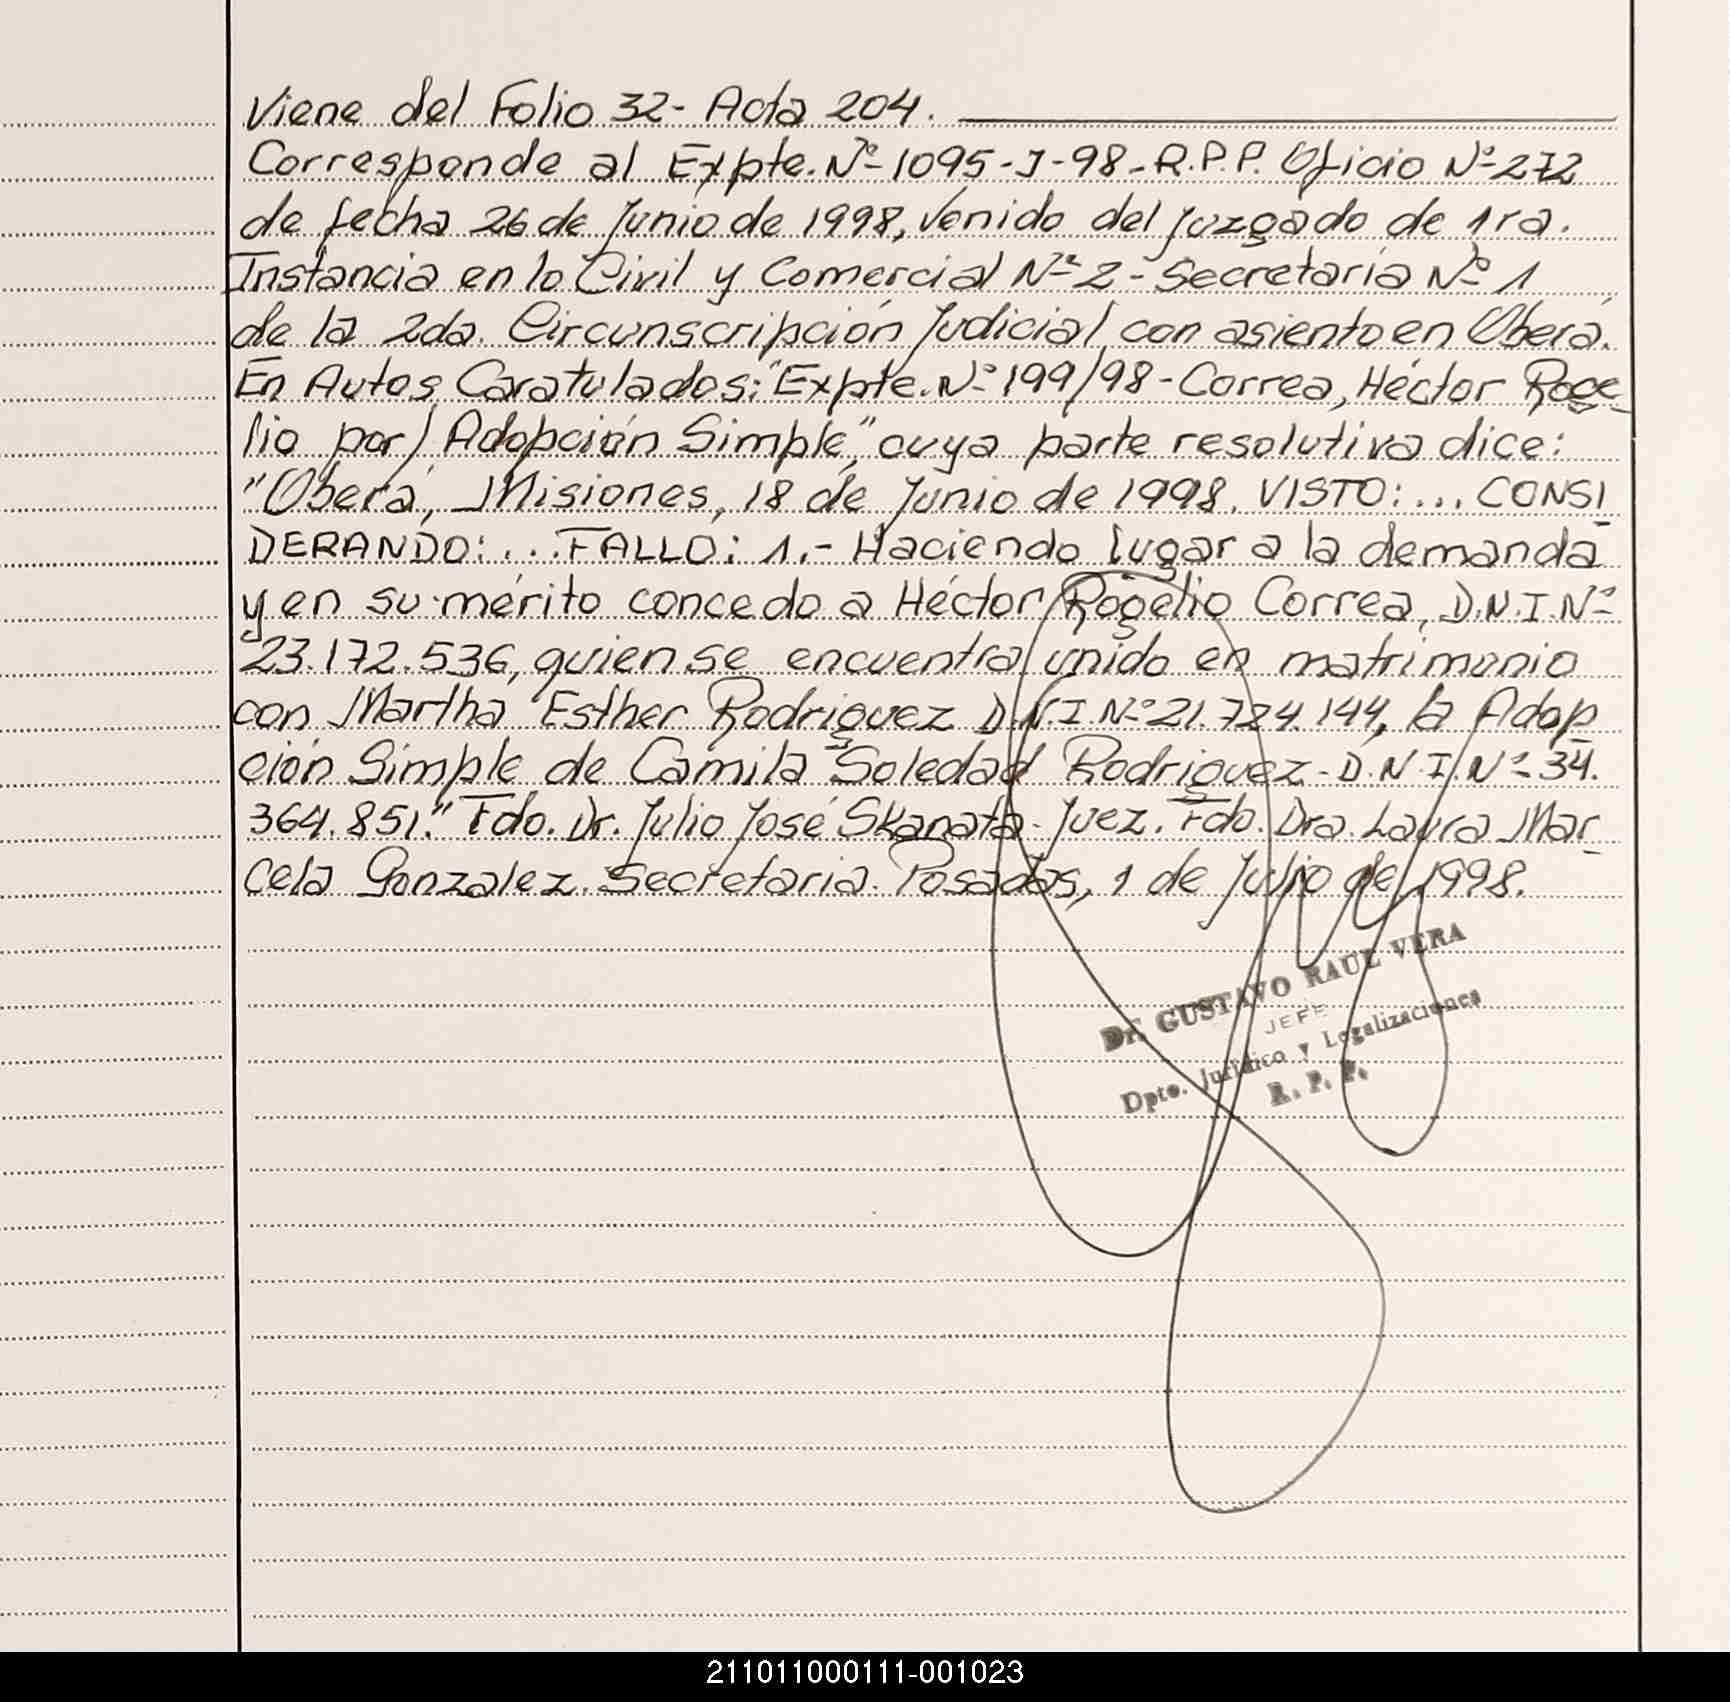 Viene del Folio 32- Acta 204.
Corresponde al Expte. Nº 1095-J-98-R.P.P. Oficio Nº 272
de fecha 26 de Junio de 1998, venido del Juzgado de 1ra.
Instancia en lo Civil y Comercial Nº 2 - Secretaría Nº 1
de la 2da. Circunscripción Judicial, con asiento en Oberá.
En Autos Caratulados: "Expte. Nº 199/98 - Correa, Héctor Roge
lio por/ Adopción Simple", cuya parte resolutiva dice:
"Oberá, Misiones, 18 de Junio de 1998. VISTO: ... CONSI
DERANDO: ... FALLO: 1.- Haciendo lugar a la demanda
y en su mérito concedo a Héctor Rogelio Correa, D.N.I. Nº
23.172.536, quien se encuentra unido en matrimonio
con Martha Esther Rodriguez D.N.I. Nº 21.724.144, la Adop
ción Simple de Camila Soledad Rodriguez - D.N.I. Nº 34.
364.851." Fdo. Dr. Julio José Skanata - Juez. Fdo. Dra. Laura Mar
cela Gonzalez. Secretaria. Posadas, 1 de Julio de 1998.
Dr. GUSTAVO RAUL VERA
JEFE
Dpto. Jurídico y Legalizaciones
R. P. P.
211011000111-001023